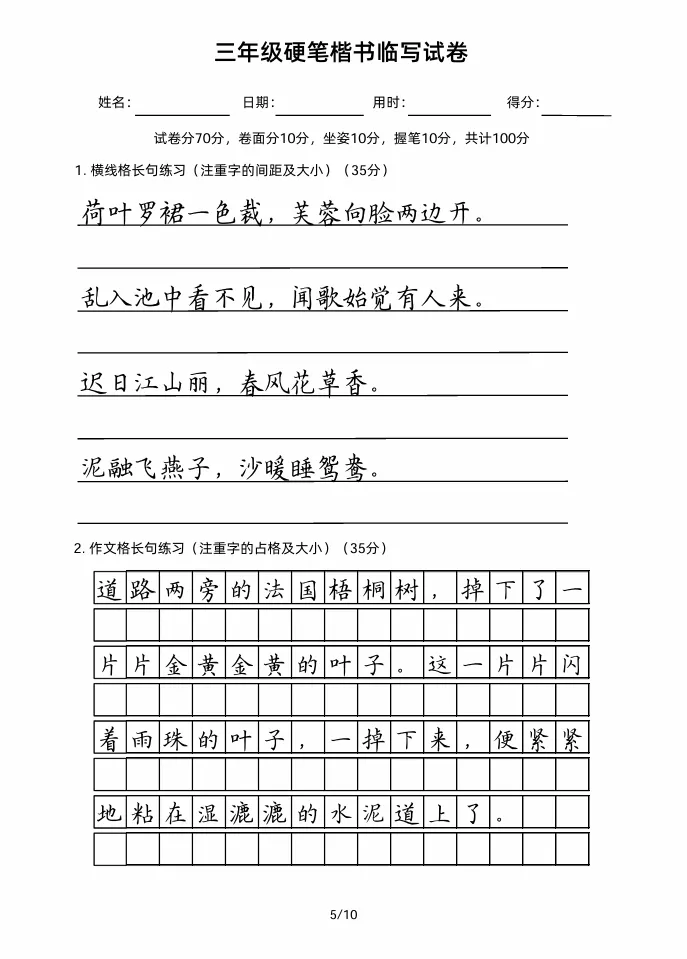 三年级硬笔楷书临写试卷
姓名： 日期： 用时： 得分：
试卷分70分，卷面分10分，坐姿10分，握笔10分，共计100分
1. 横线格长句练习（注重字的间距及大小）（35分）
荷叶罗裙一色裁，芙蓉向脸两边开。
乱入池中看不见，闻歌始觉有人来。
迟日江山丽，春风花草香。
泥融飞燕子，沙暖睡鸳鸯。
2. 作文格长句练习（注重字的占格及大小）（35分）
道路两旁的法国梧桐树，掉下了一
片片金黄金黄的叶子。这一片片闪
着雨珠的叶子，一掉下来，便紧紧
地粘在湿漉漉的水泥道上了。
5/10